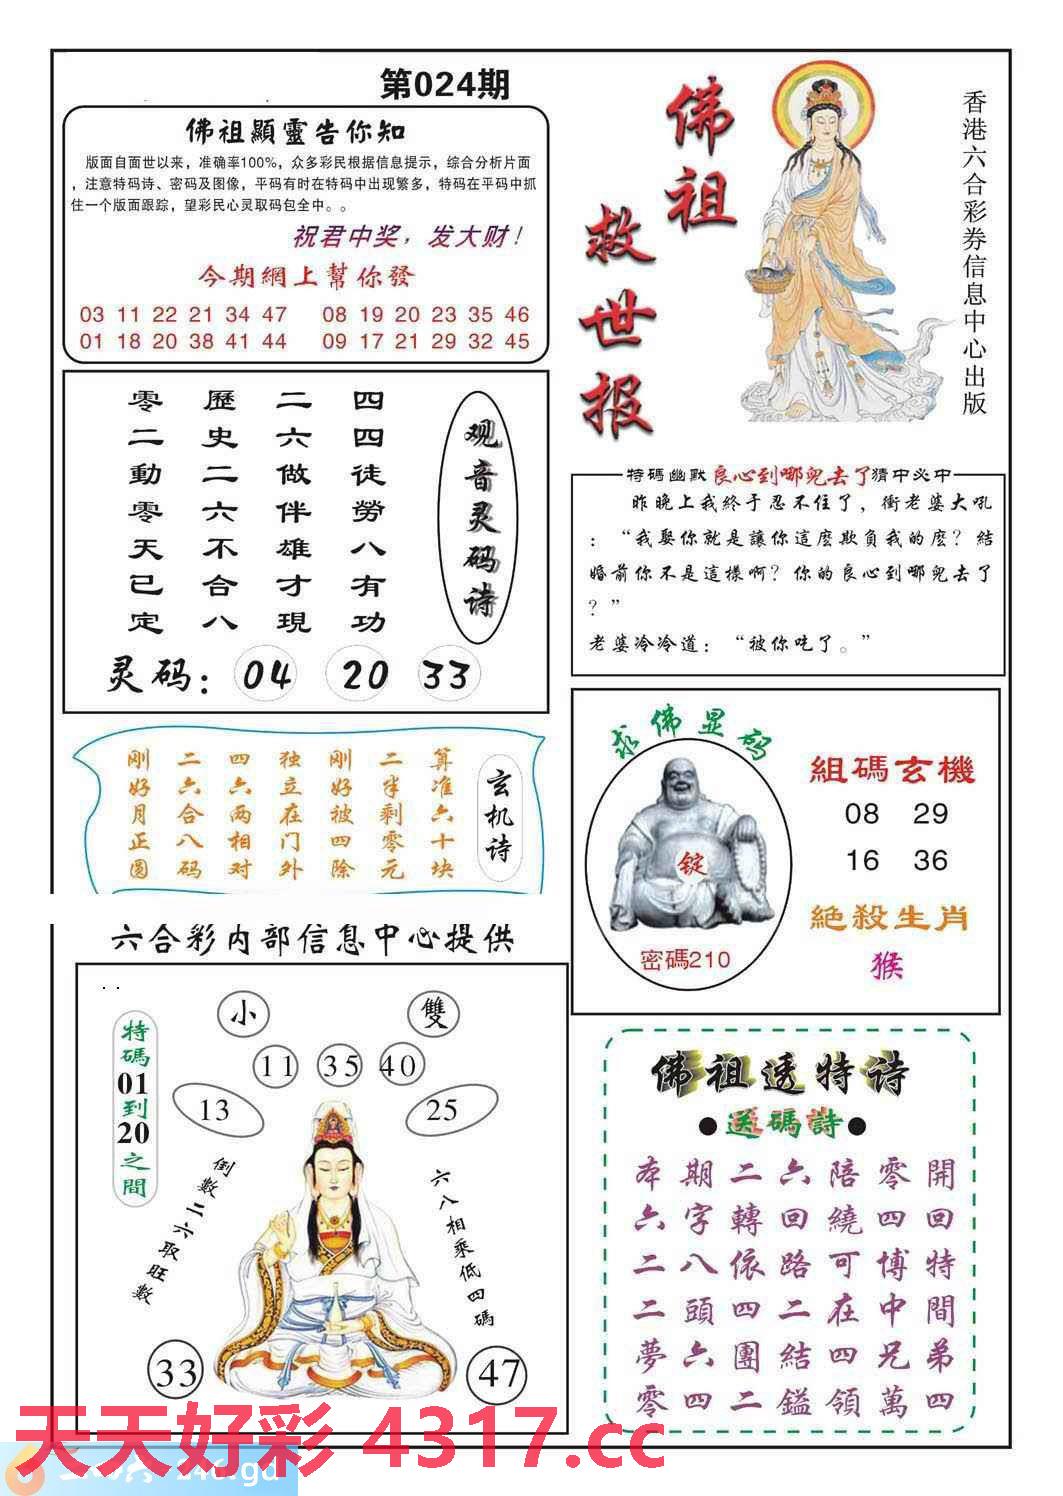 第024期
佛祖顯靈告你知
版面自面世以来，准确率100%，众多彩民根据信息提示，综合分析片面
，注意特码诗、密码及图像，平码有时在特码中出现繁多，特码在平码中抓
住一个版面跟踪，望彩民心灵取码包全中。。
祝君中奖，发大财！
今期網上幫你發
03 11 22 21 34 47 08 19 20 23 35 46
01 18 20 38 41 44 09 17 21 29 32 45
佛祖
救世报
香港六合彩券信息中心出版
观音灵码诗
四四徒勞八有功
二六做伴雄才現
歷史二六不合八
零二動零天已定
灵码：04 20 33
特碼幽默良心到哪兒去了猜中必中
昨晚上我終于忍不住了，衝老婆大吼
：“我娶你就是讓你這麼欺負我的麼？結
婚前你不是這樣啊？你的良心到哪兒去了
？”
老婆冷冷道：“被你吃了。”
玄机诗
算准六十块
二半剩零元
刚好被四除
独立在门外
四六两相对
二六合八码
刚好月正圆
求佛显码
錠
密碼210
組碼玄機
08 29
16 36
絕殺生肖
猴
六合彩内部信息中心提供
小 雙
11 35 40
13 25
特碼01到20之間
倒數二六取旺數
六八相乘低四碼
33 47
佛祖透特诗
●送碼詩●
本期二六陪零開
六字轉回繞四回
二八依路可博特
二頭四二在中間
夢六團結四兄弟
零四二鎰領萬四
天天好彩 4317.cc
246.gd